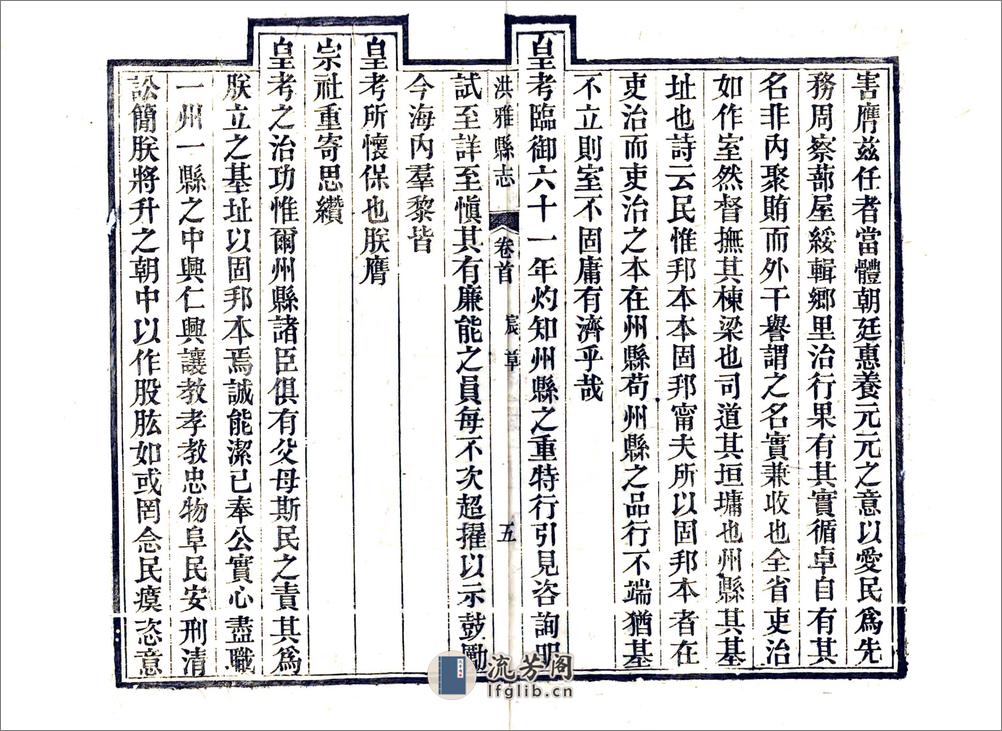 害膺茲任者當體朝廷惠養元元之意以愛民爲先
務周察蔀屋綏輯鄉里治行果有其實循卓自有其
名非內聚賄而外干譽謂之名實兼收也全省吏治
如作室然督撫其棟梁也司道其垣墉也州縣其基
址也詩云民惟邦本本固邦甯夫所以固邦本者在
吏治而吏治之本在州縣苟州縣之品行不端猶基
不立則室不固庸有濟乎哉
皇考臨御六十一年灼知州縣之重特行引見咨詢明
洪雅縣志 卷首 宸章 五
試至詳至愼其有廉能之員每不次超擢以示鼓勵
今海內羣黎皆
皇考所懷保也朕膺
宗社重寄思纘
皇考之治功惟爾州縣諸臣俱有父母斯民之責其爲
朕立之基址以固邦本焉誠能潔已奉公實心盡職
一州一縣之中興仁興讓教孝教忠物阜民安刑清
訟簡朕將升之朝中以作股肱如或罔念民瘼恣意
流芳阁
lfglib.cn